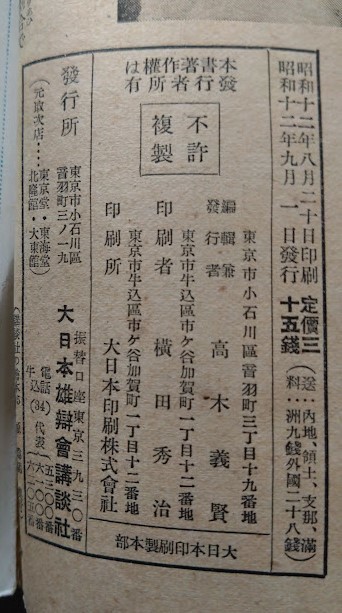 昭和十二年八月二十日印刷
昭和十二年九月一日發行
定價三十五錢
(送料:內地、領土、支那、滿洲九錢外國二十八錢)
本書著作權は發行者所有
不許複製
東京市小石川區音羽町三丁目十九番地
編輯兼發行者 高木義賢
東京市牛込區市ケ谷加賀町一丁目十二番地
印刷者 橫田秀治
東京市牛込區市ケ谷加賀町一丁目十二番地
印刷所 大日本印刷株式會社
大日本印刷製本部
發行所
東京市小石川區音羽町三ノ一九
大日本雄辯會講談社
振替口座東京三九三〇番
電話牛込(34)代表
五三〇〇番
(元取次店……東京堂・東海堂
北隆館・大東館)